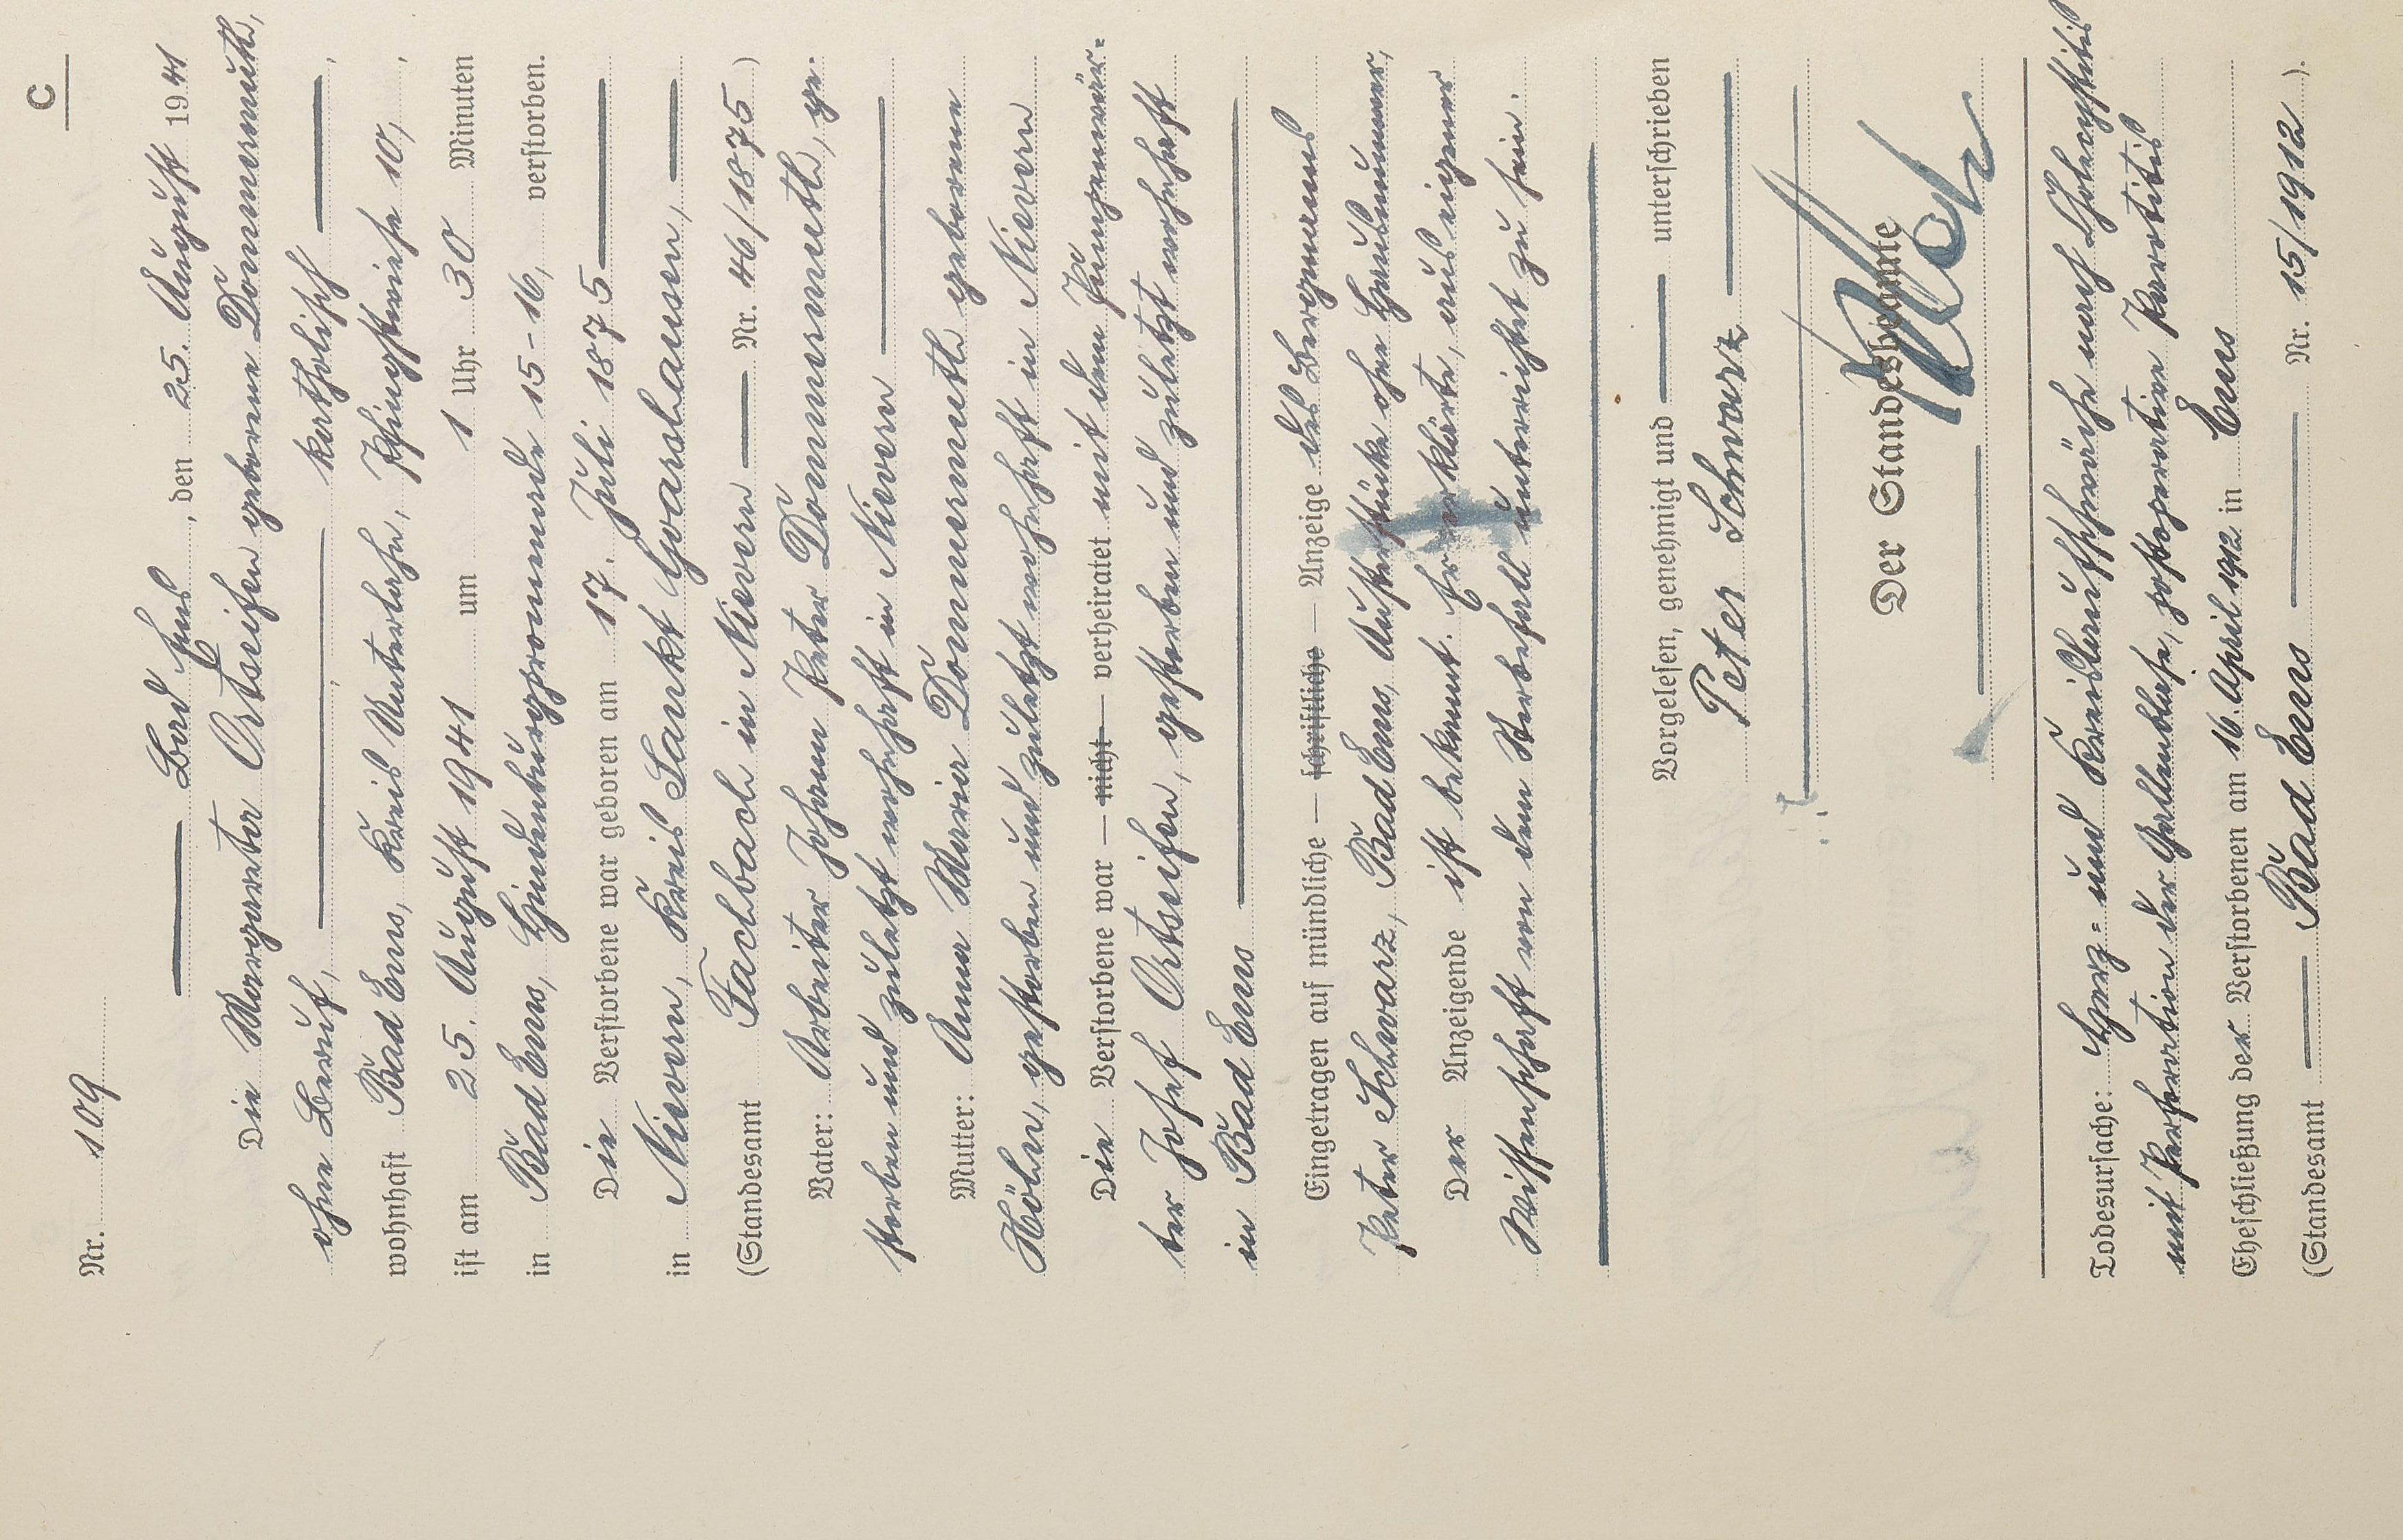 C
Nr. 109
Bad Ems, den 25. August 1941
Die Margareta Ortseifen geborene Donnermuth,
ohne Beruf, katholisch,
wohnhaft Bad Ems, Kreis Unterlahn, Pfingstwiese 10,
ist am 25. August 1941 um 1 Uhr 30 Minuten
in Bad Ems, Hindenburgpromenade 15-16, verstorben.
Die Verstorbene war geboren am 17. Juli 1875
in Nievern, Kreis Sankt Goarshausen,
(Standesamt Fachbach in Nievern Nr. 46/1875)
Vater: Arbeiter Johann Peter Donnermuth, ge-
storben und zuletzt wohnhaft in Nievern
Mutter: Anna Maria Donnermuth geborene
Höhn, gestorben und zuletzt wohnhaft in Nievern
Die Verstorbene war — nicht — verheiratet mit dem
ter Josef Ortseifen, gestorben und zuletzt wohnhaft
in Bad Ems
Eingetragen auf mündliche — schriftliche — Anzeige des Bergmanns
Peter Schwarz, Bad Ems, ohne Hausnummer,
Der Anzeigende ist bekannt. Er erklärte, aus eigener
Wissenschaft von dem Sterbefall unterrichtet zu sein.
Vorgelesen, genehmigt und unterschrieben
Peter Schwarz
Der Standesbeamte
Todesursache: Herz- und Kreislaufschwäche nach Cholecystitis
mit Perforation der Gallenblase, postoperative Parotitis
Eheschließung der Verstorbenen am 16. April 1912 in Ems
(Standesamt Bad Ems Nr. 15/1912).